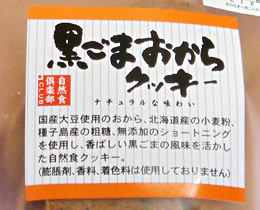 黒ごまおから
クッキー
自然食
倶楽部
CLUB
ナチュラルな味わい
国産大豆使用のおから、北海道産の小麦粉、
種子島産の粗糖、無添加のショートニング
を使用し、香ばしい黒ごまの風味を活かし
た自然食クッキー。
(膨脹剤、香料、着色料は使用しておりません)